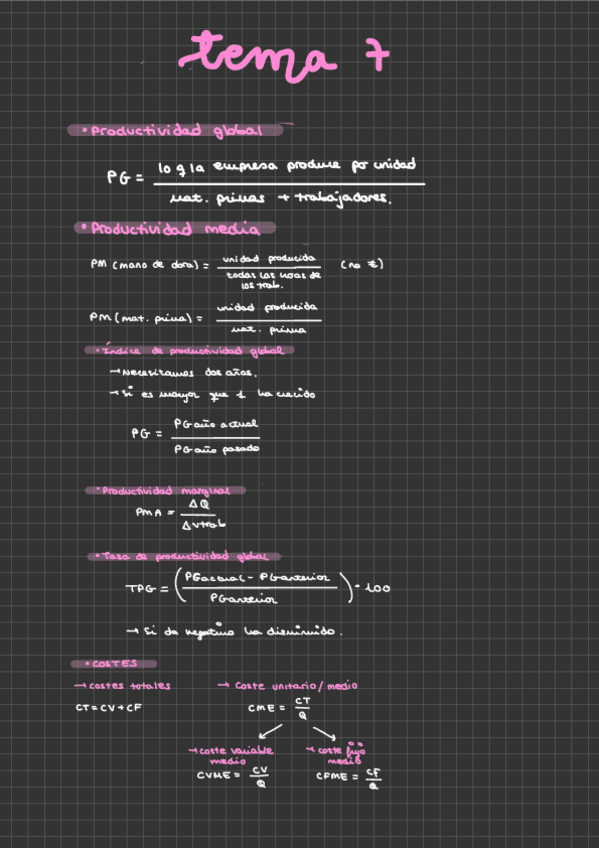 tema 7
• Productividad global
PG = lo q la empresa produce por unidad
mat. primas + trabajadores.
• Productividad media
PM (mano de obra) = unidad producida (no €)
todas las horas de
los trab.
PM (mat. prima) = unidad producida
mat. prima
• Índice de productividad global
→ Necesitamos dos años.
→ Si es mayor que 1 ha crecido
PG = PG año actual
PG año pasado
• Productividad marginal
PMA = ΔQ
Δvtrab
• Tasa de productividad global
TPG = (PGactual - PGanterior) · 100
PGanterior
→ Si da negativo ha disminuido.
• COSTES
→ costes totales → Coste unitario/medio
CT = CV + CF CME = CT
Q
→ coste variable → coste fijo
medio medio
CVME = CV CFME = CF
Q Q